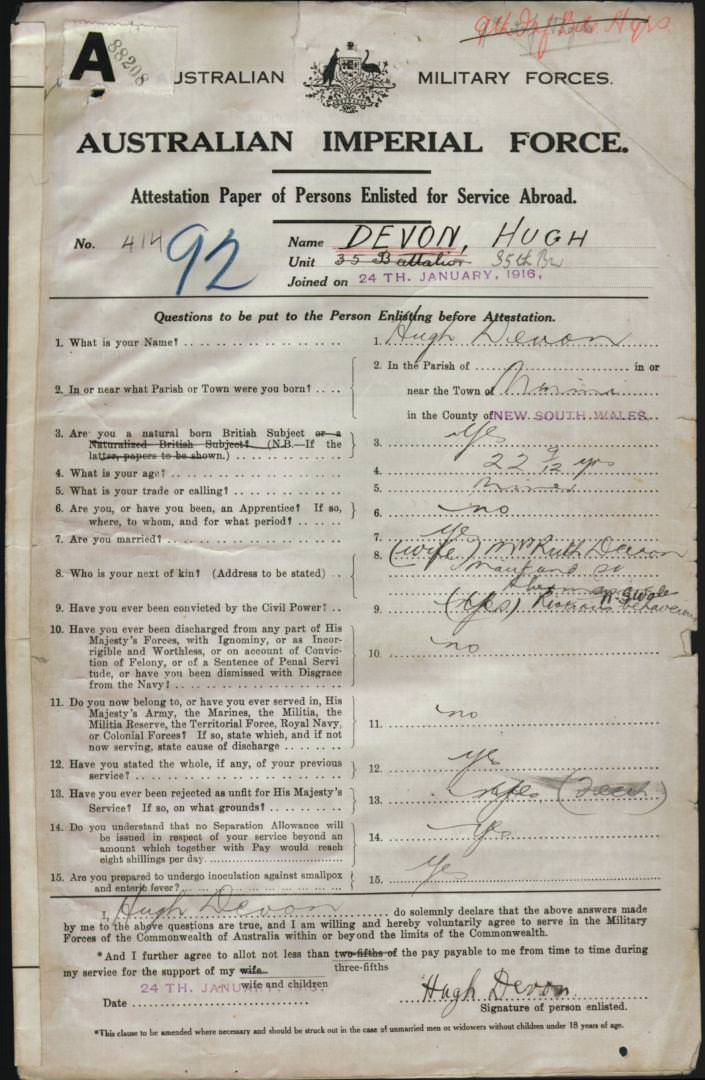 A 88208
AUSTRALIAN MILITARY FORCES.
AUSTRALIAN IMPERIAL FORCE.
Attestation Paper of Persons Enlisted for Service Abroad.
No. 414 92 Name DEVON, HUGH
Unit 35 Battalion 35th Bn
Joined on 24 TH. JANUARY, 1916.
Questions to be put to the Person Enlisting before Attestation.
1. What is your Name? 1. Hugh Devon
2. In or near what Parish or Town were you born? 2. In the Parish of in or
near the Town of
in the County of NEW SOUTH WALES
3. Are you a natural born British Subject or a
Naturalized British Subject? (N.B.—If the
latter, papers to be shown.) 3. Yes
4. What is your age? 4. 22 9/12 yrs
5. What is your trade or calling? 5. Miner
6. Are you, or have you been, an Apprentice? If so,
where, to whom, and for what period? 6. no
7. Are you married? 7. Yes
8. Who is your next of kin? (Address to be stated) 8. (wife) Mrs Ruth Devon
Maitland St
N.S.Wales
9. Have you ever been convicted by the Civil Power? 9. (Yes) Riotous behaviour
10. Have you ever been discharged from any part of His
Majesty's Forces, with Ignominy, or as Incor-
rigible and Worthless, or on account of Convic-
tion of Felony, or of a Sentence of Penal Servi
tude, or have you been dismissed with Disgrace
from the Navy? 10. no
11. Do you now belong to, or have you ever served in, His
Majesty's Army, the Marines, the Militia, the
Militia Reserve, the Territorial Force, Royal Navy,
or Colonial Forces? If so, state which, and if not
now serving, state cause of discharge 11. no
12. Have you stated the whole, if any, of your previous
service? 12. Yes
13. Have you ever been rejected as unfit for His Majesty's
Service? If so, on what grounds? 13. Yes (Teeth)
14. Do you understand that no Separation Allowance will
be issued in respect of your service beyond an
amount which together with Pay would reach
eight shillings per day. 14. Yes
15. Are you prepared to undergo inoculation against smallpox
and enteric fever? 15. Yes
I, Hugh Devon do solemnly declare that the above answers made
by me to the above questions are true, and I am willing and hereby voluntarily agree to serve in the Military
Forces of the Commonwealth of Australia within or beyond the limits of the Commonwealth.
*And I further agree to allot not less than two-fifths of the pay payable to me from time to time during
three-fifths
my service for the support of my wife.
wife and children
Date 24 TH. JANUARY Hugh Devon
Signature of person enlisted.
*This clause to be amended where necessary and should be struck out in the case of unmarried men or widowers without children under 18 years of age.